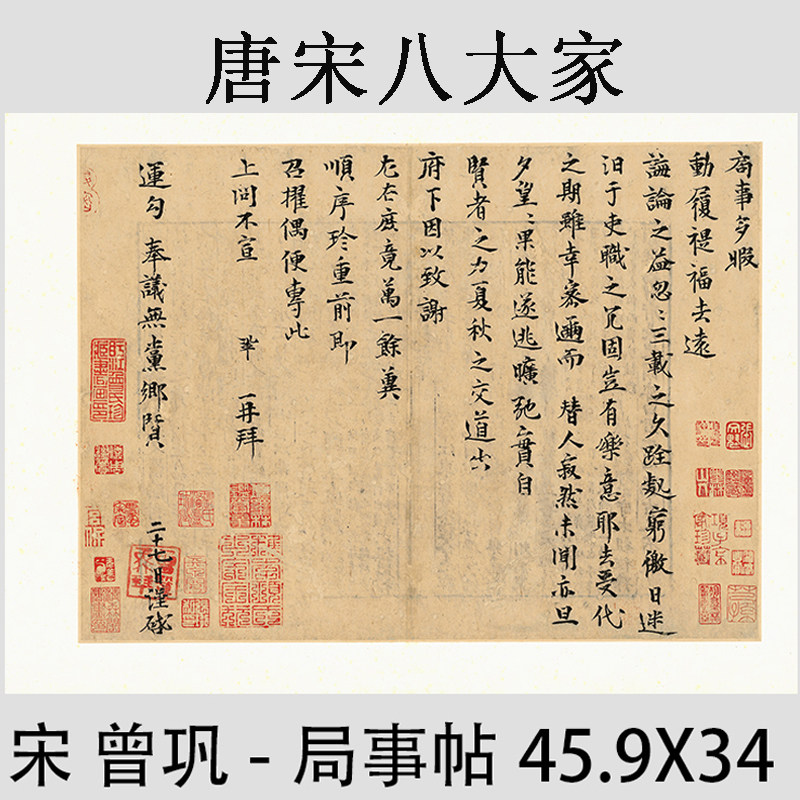 唐宋八大家
局事多暇
動履禔福去遠
誨論之益忽〻三載之久跧處窮徼日迷
汩于吏職之冗固豈有樂意耶去受代
之期雖幸密邇而 替人寂然未聞亦旦
夕望〻果能遂逃曠弛實自
賢者之力夏秋之交道出
府下因以致謝
左右庶竟萬一餘冀
順序珍重前即
召擢偶便專此
上問不宣 鞏 再拜
運勾 奉議無黨鄉賢
二十七日謹啓
項子京家珍藏
宋 曾巩 - 局事帖 45.9X34